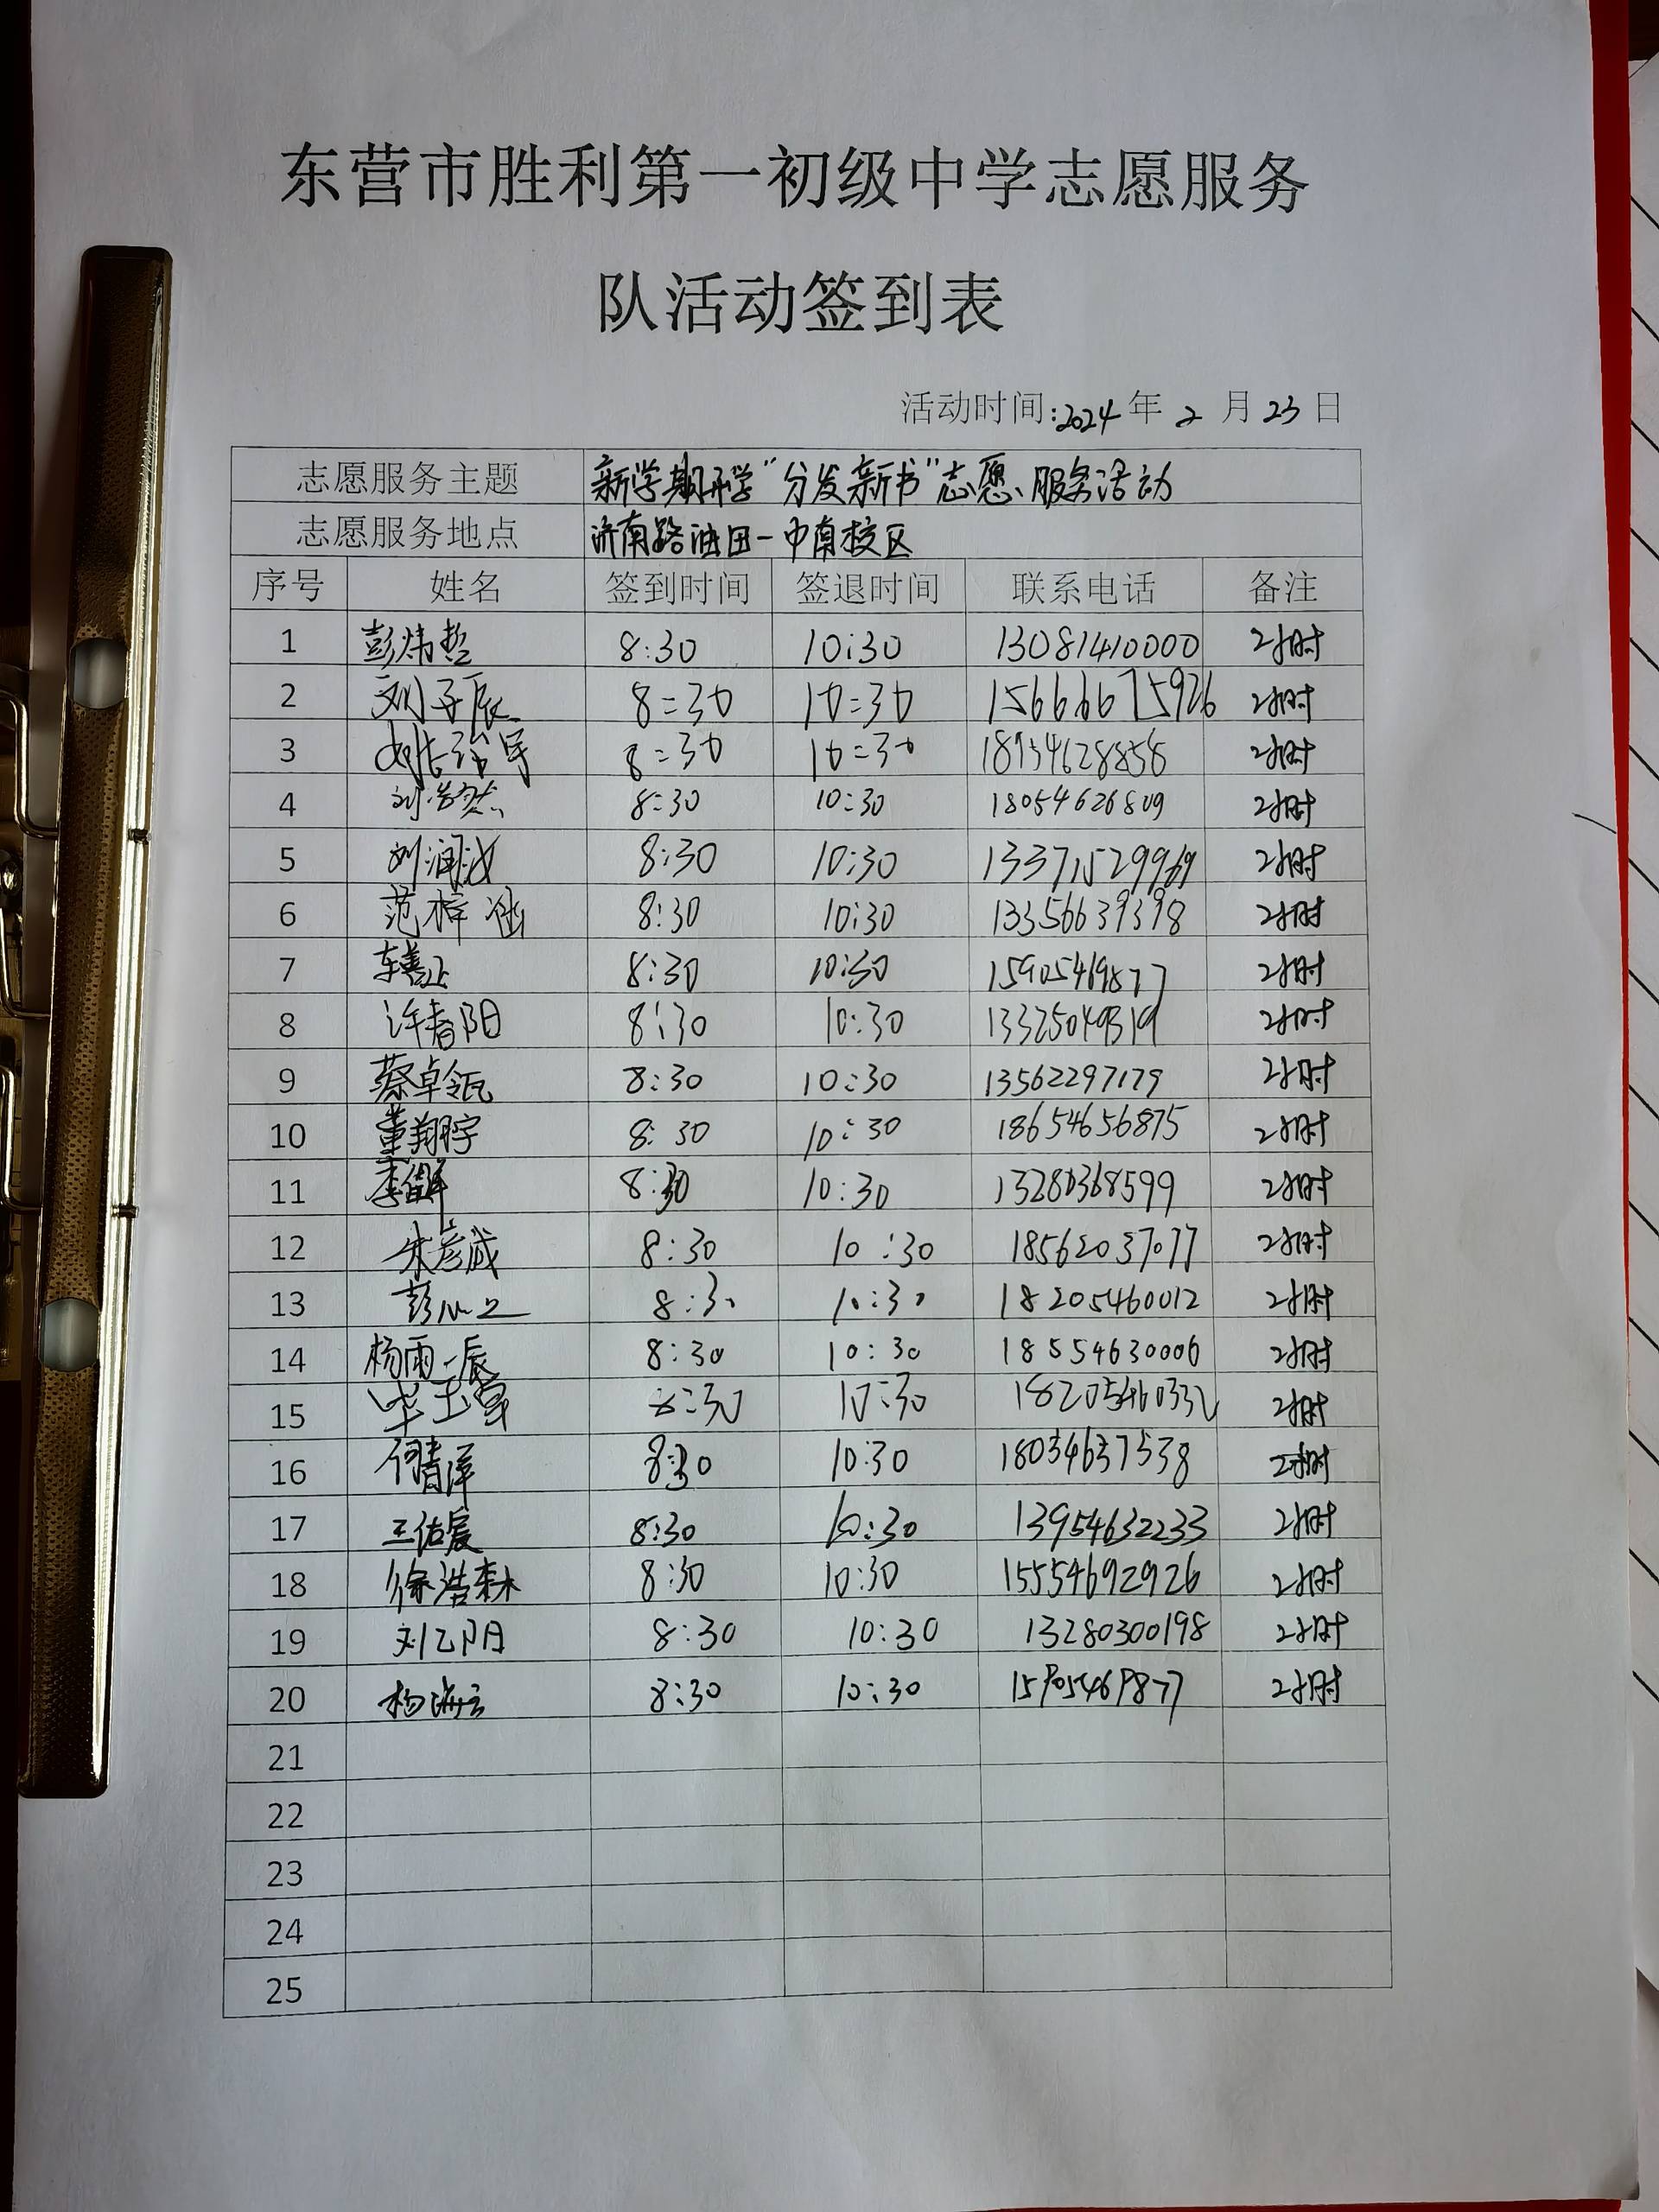 东营市胜利第一初级中学志愿服务
队活动签到表
活动时间:2024年 2 月 23 日
志愿服务主题 新学期开学“分发新书”志愿服务活动
志愿服务地点 济南路油田一中南校区
序号 姓名 签到时间 签退时间 联系电话 备注
1 彭炜哲 8:30 10:30 13081410000 2小时
2 刘子辰 8:30 10:30 15666675926 2小时
3 8:30 10:30 2小时
4 刘浩然 8:30 10:30 18054626809 2小时
5 刘润波 8:30 10:30 2小时
6 范梓涵 8:30 10:30 13356639398 2小时
7 8:30 10:30 15905469877 2小时
8 许春阳 8:30 10:30 2小时
9 蔡卓瓴 8:30 10:30 13562297179 2小时
10 董翔宇 8:30 10:30 18654656875 2小时
11 8:30 10:30 13280368599 2小时
12 朱彦成 8:30 10:30 18562037077 2小时
13 彭心之 8:30 10:30 18205460012 2小时
14 杨雨辰 8:30 10:30 18554630006 2小时
15 8:30 10:30 18205460332 2小时
16 何青泽 8:30 10:30 18034637538 2小时
17 王佑宸 8:30 10:30 13954632233 2小时
18 徐浩森 8:30 10:30 15554692926 2小时
19 刘乙阳 8:30 10:30 13280300198 2小时
20 8:30 10:30 15905469877 2小时
21
22
23
24
25